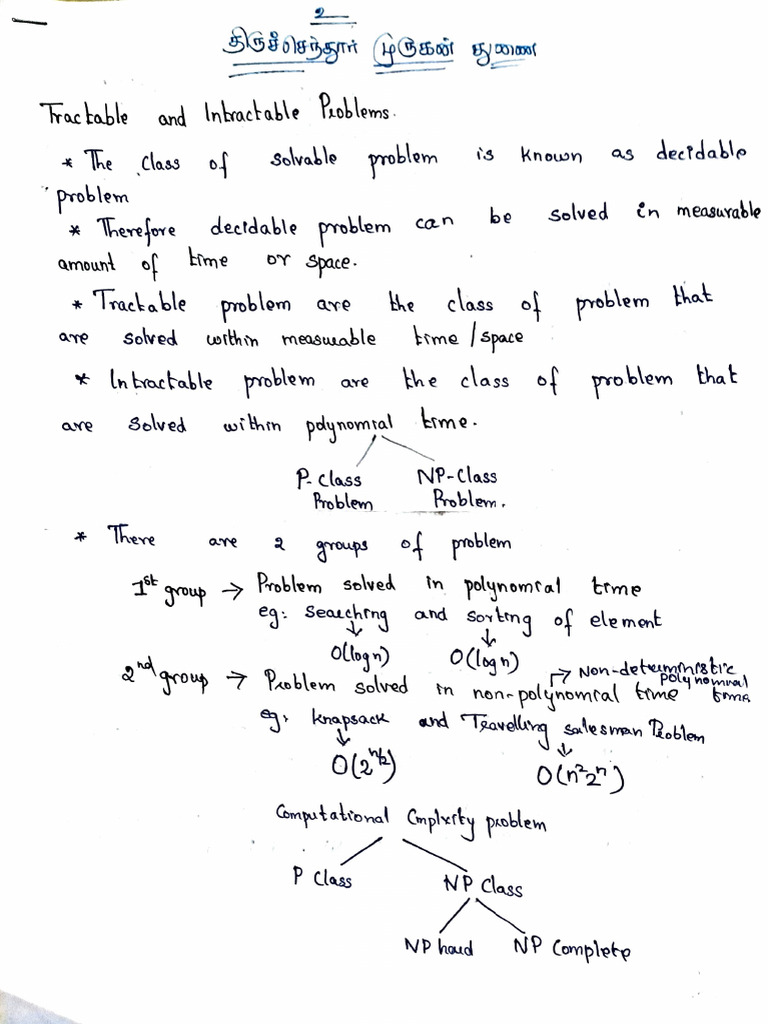 உ
திருச்செந்தூர் முருகன் துணை
Tractable and Intractable Problems.
* The class of solvable problem is known as decidable
problem
* Therefore decidable problem can be solved in measurable
amount of time or space.
* Tractable problem are the class of problem that
are solved within measurable time/space
* Intractable problem are the class of problem that
are solved within polynomial time.
P-Class NP-Class
Problem Problem.
* There are 2 groups of problem
1st group → Problem solved in polynomial time
eg: Searching and sorting of element
O(log n) O(log n)
Non-deterministic
polynomial
2nd group → Problem solved in non-polynomial time time
eg: knapsack and Travelling salesman Problem
O(2^n/2) O(n²2^n)
Computational Cmplxity problem
P Class NP Class
NP hard NP Complete